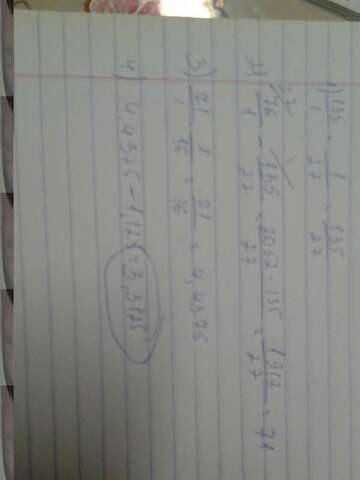 1) 135/1 · 1/27 = 135/27
2) 76/1 − 135/27 = 2052 - 135/27 = 1917/27 = 71
3) 71/1 · 1/16 = 71/16 = 4,4375
4) 4,4375 − 1,125 = 3,3125